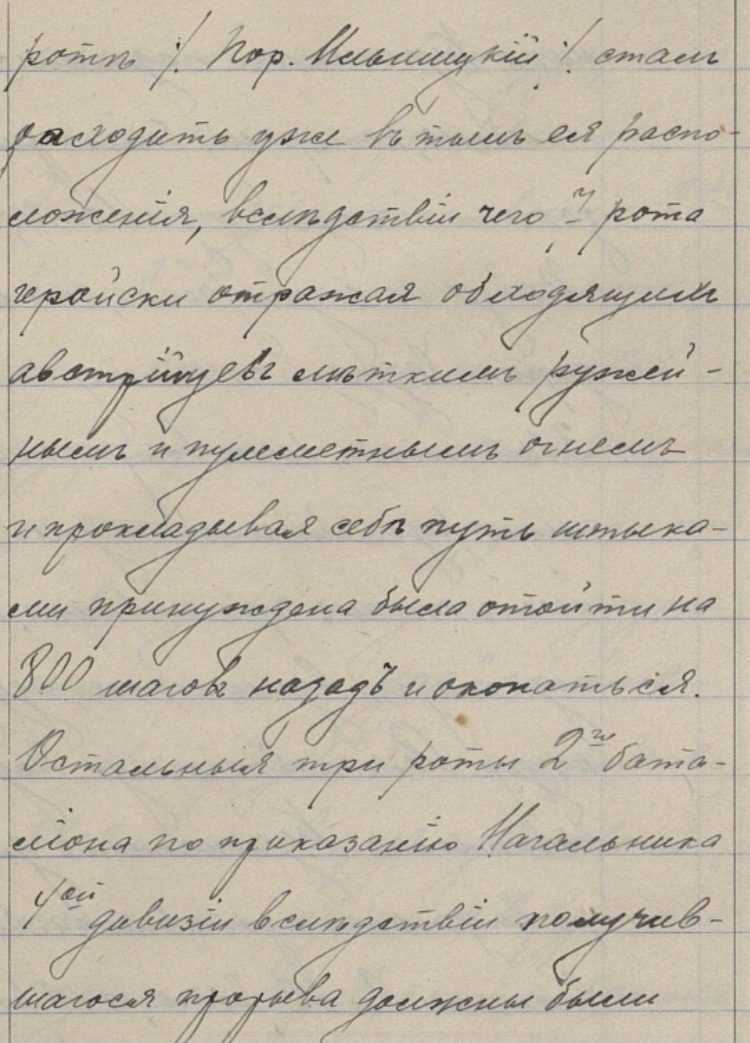 ротѣ /. Пор. Ильницкій ./ сталъ
заходить уже въ тылъ ея распо-
ложенія, вслѣдствіи чего 7 рота
геройски отражая обходящихъ
австрійцевъ мѣткимъ ружей-
нымъ и пулеметнымъ огнемъ
и прокладывая себѣ путь штыка-
ми принуждена была отойти на
800 шаговъ назадъ и окопаться.
Остальныя три роты 2го бата-
ліона по приказанію Начальника
4ой дивизіи вслѣдствіи получив-
шагося прорыва должны были